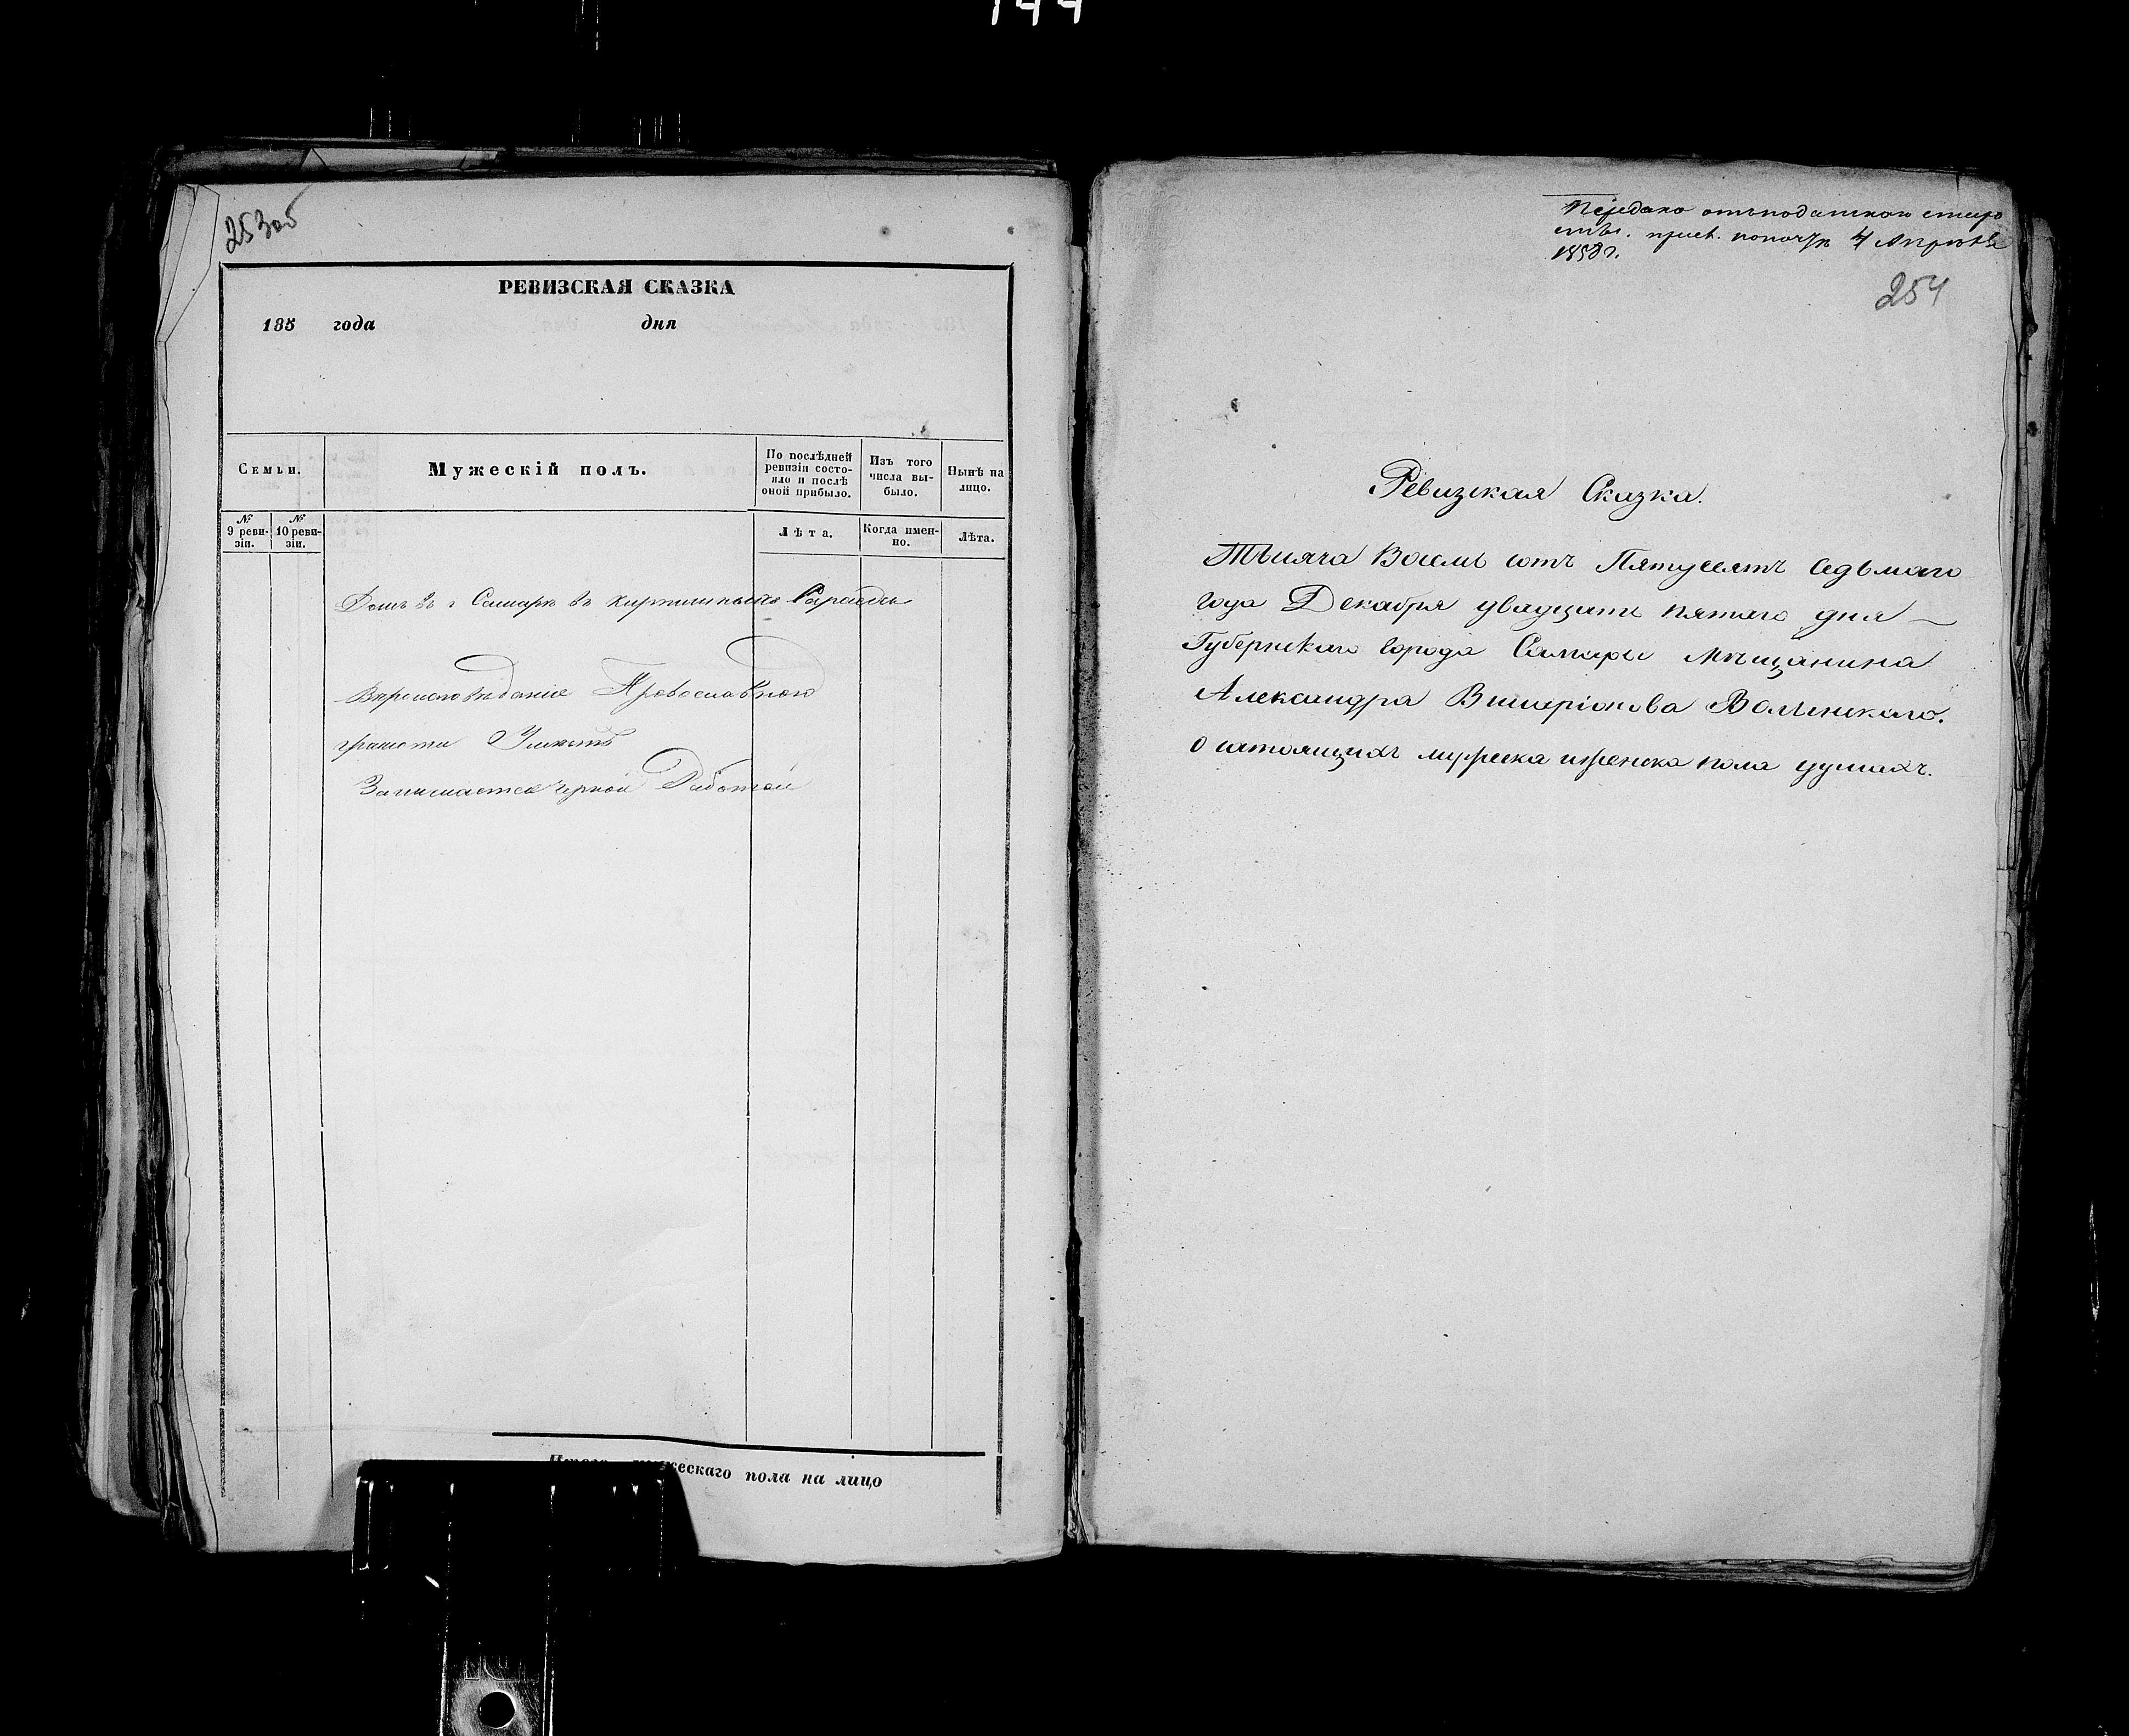 144
253об
РЕВИЗСКАЯ СКАЗКА
185 года дня
Семьи.
Мужескій полъ.
По послѣдней ревизіи состояло и послѣ оной прибыло.
Изъ того числа выбыло.
Нынѣ на лицо.
№ 9 ревизіи.
№ 10 ревизіи.
Лѣта.
Когда именно.
Лѣта.
Домъ въ г Самарѣ въ кирпишныхъ Сараяхъ
Вѣроисповѣданіе Православною
грамоти Умѣетъ
Занимается Черной Работой
мужескаго пола на лицо
Передано отъ податнаго
4 Апрѣля
1858 г.
254
Ревизская Сказка.
Тысяча Восемь сотъ Пятдесятъ седьмаго
года Декабря двадцать пятаго дня
Губернскаго города Самары мѣщанина
Александра Висаріонова Волынскаго.
о состоящихъ мужеска и женска пола душахъ.